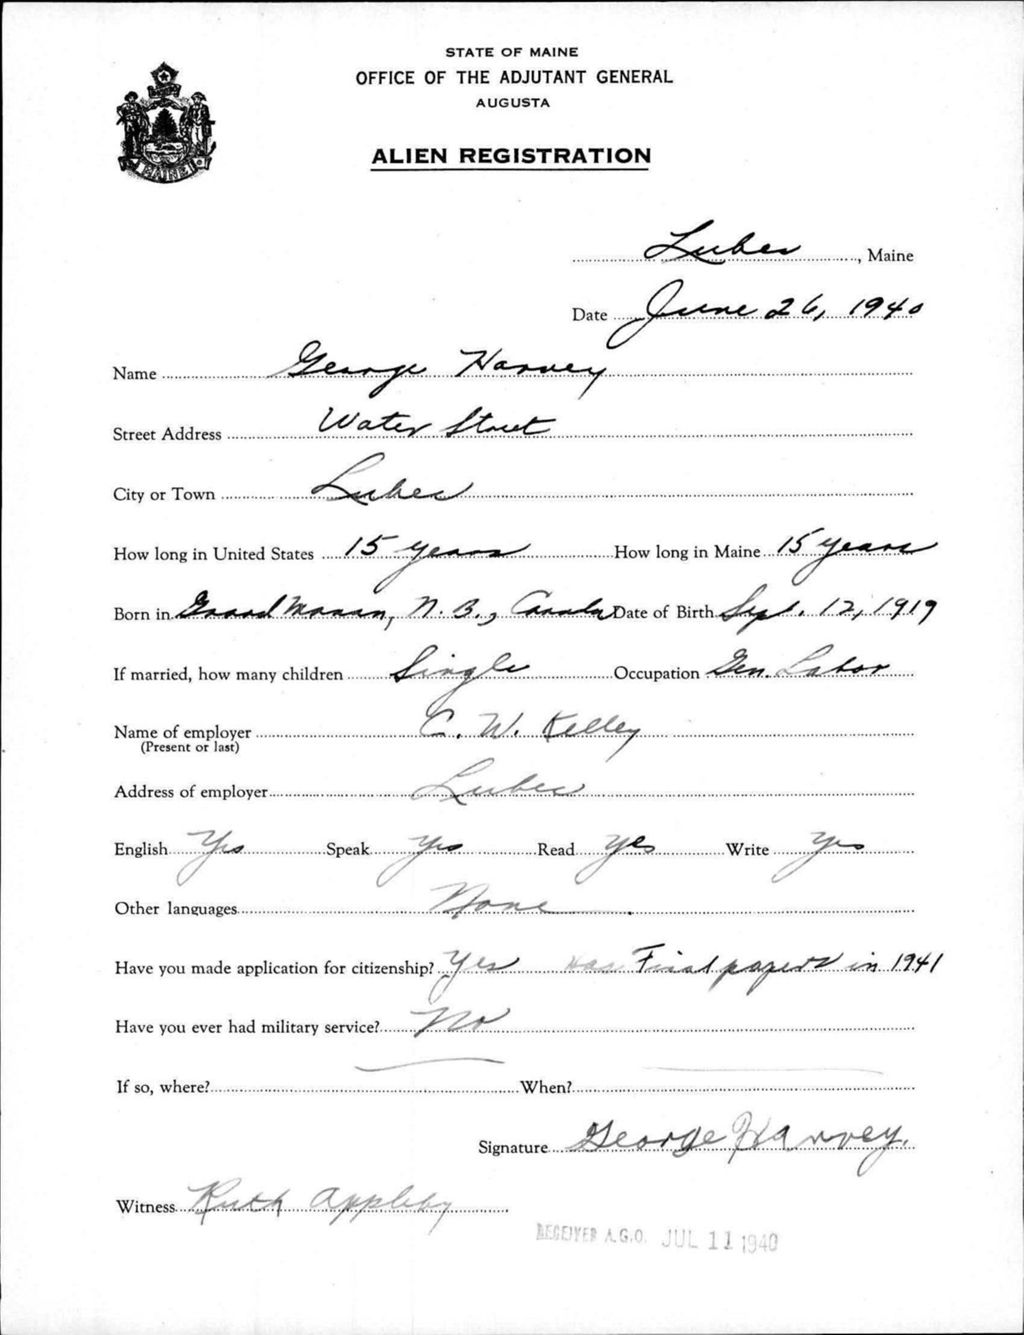 STATE OF MAINE
OFFICE OF THE ADJUTANT GENERAL
AUGUSTA
ALIEN REGISTRATION
MAINE
Lubec, Maine
Date June 26, 1940
Name George Harvey
Street Address Water Street
City or Town Lubec
How long in United States 15 years How long in Maine 15 years
Born in Grand Manan, N. B., Canada Date of Birth Sept. 12, 1919
If married, how many children Single Occupation Gen. Labor
Name of employer C. W. Kelley
(Present or last)
Address of employer Lubec
English Yes Speak Yes Read Yes Write Yes
Other languages None
Have you made application for citizenship? Yes has Final papers in 1941
Have you ever had military service? No
If so, where? When?
Signature George Harvey.
Witness Ruth Appleby
RECEIVED A.G.O. JUL 11 1940